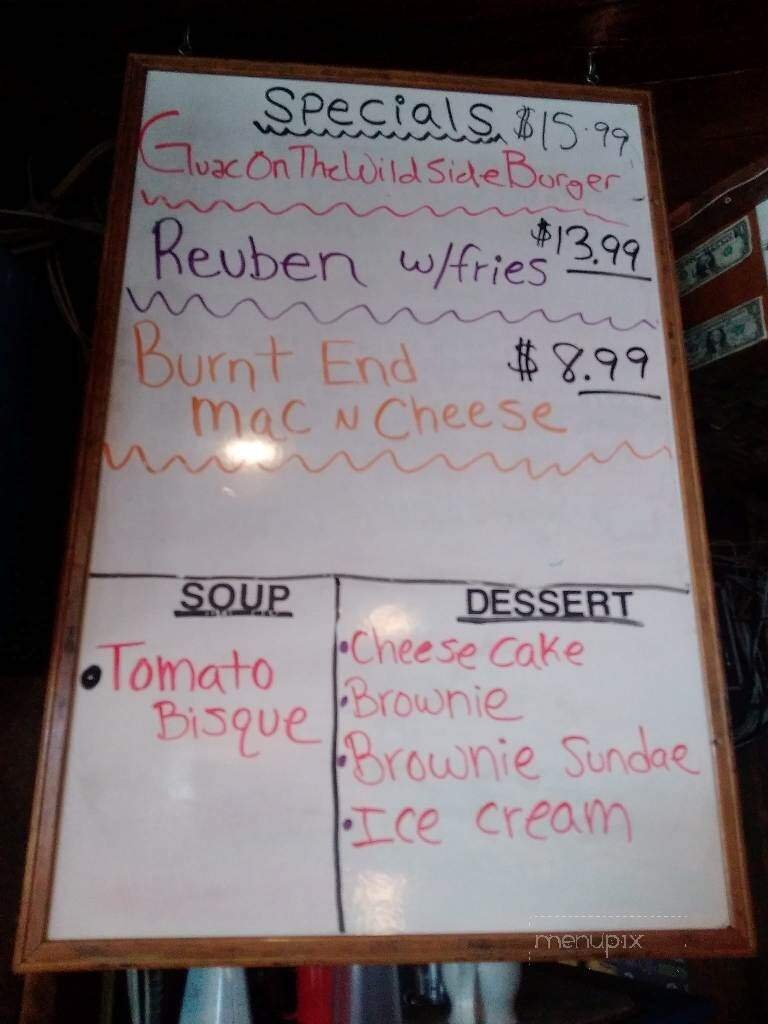 Specials $15.99
Guac On The Wild Side Burger
Reuben w/fries $13.99
Burnt End $8.99
Mac N Cheese
SOUP
DESSERT
•Tomato
Bisque
•Cheese cake
•Brownie
•Brownie Sundae
•Ice cream
menupix